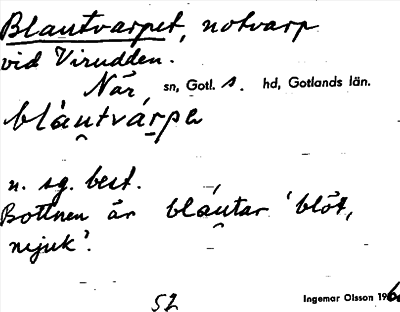 Blautvarpet, notvarp
vid Virudden.
När, sn, Gotl. s. hd, Gotlands län.
blàu̯tvárpe
n. sg. best.
Bottnen är bláu̯tar 'blöt,
mjuk'.
52 Ingemar Olsson 196